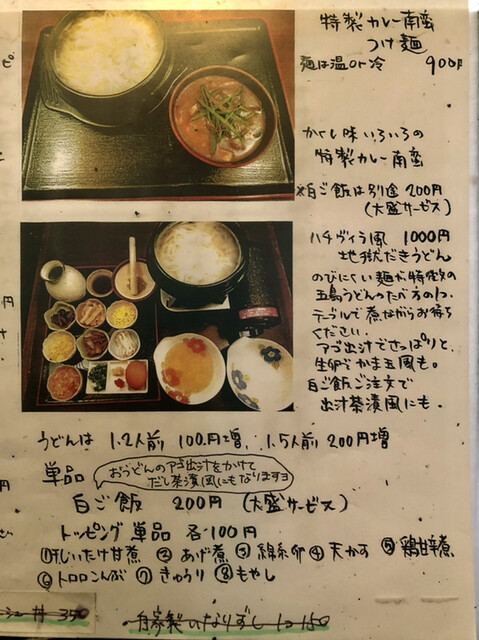 特製カレー南蛮
つけ麺
麺は温or冷 900円
かくし味いろいろの
特製カレー南蛮
※白ご飯は別途200円
(大盛サービス)
ハチヴィラ風 1000円
地獄だきうどん
のびにくい麺が特徴の
五島うどんのたべ方の1つ。
テーブルで煮ながらお待ち
ください。
アゴ出汁でさっぱりと、
生卵でかま玉風も。
白ご飯ご注文で
出汁茶漬風にも。
うどんは 1.2人前 100円増、1.5人前 200円増
単品
おうどんのアゴ出汁をかけて
だし茶漬風にもなりますョ
白ご飯 200円 (大盛サービス)
トッピング 単品 各100円
①干しいたけ甘煮 ②あげ煮 ③錦糸卵 ④天かす ⑤鶏甘辛煮
⑥トロロこんぶ ⑦きゅうり ⑧もやし
丼 350
自家製いなりずし 1コ150